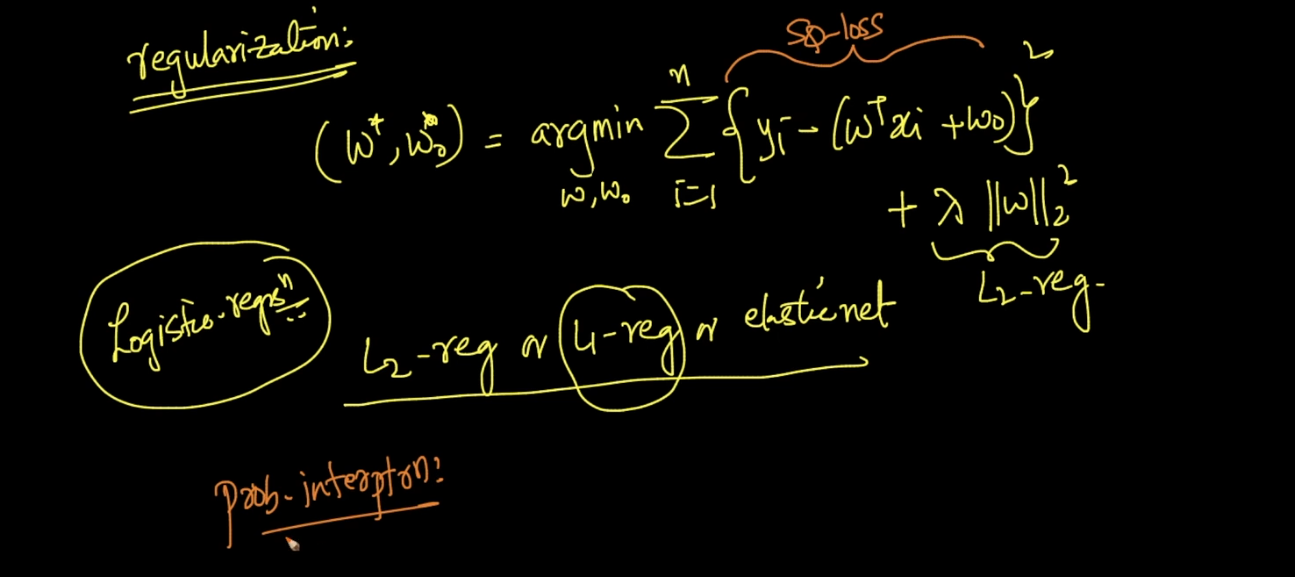 regularization:
sq-loss
(w*, w₀*) = argmin_{w, w₀} Σ_{i=1}^{n} {yᵢ - (wᵀxᵢ + w₀)}²
+ λ ||w||₂²
L₂-reg.
Logistic-regrsⁿ
L₂-reg or L1-reg or elasticnet
Prob. interpton: